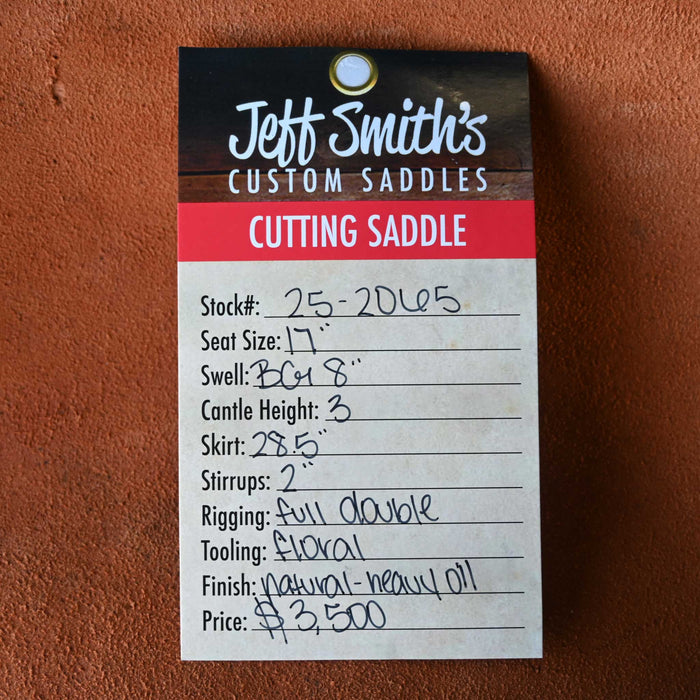 Jeff Smith's
CUSTOM SADDLES
CUTTING SADDLE
Stock#: 25-2065
Seat Size: 17"
Swell: BG 8"
Cantle Height: 3
Skirt: 28.5"
Stirrups: 2"
Rigging: full double
Tooling: floral
Finish: natural-heavy oil
Price: $3,500